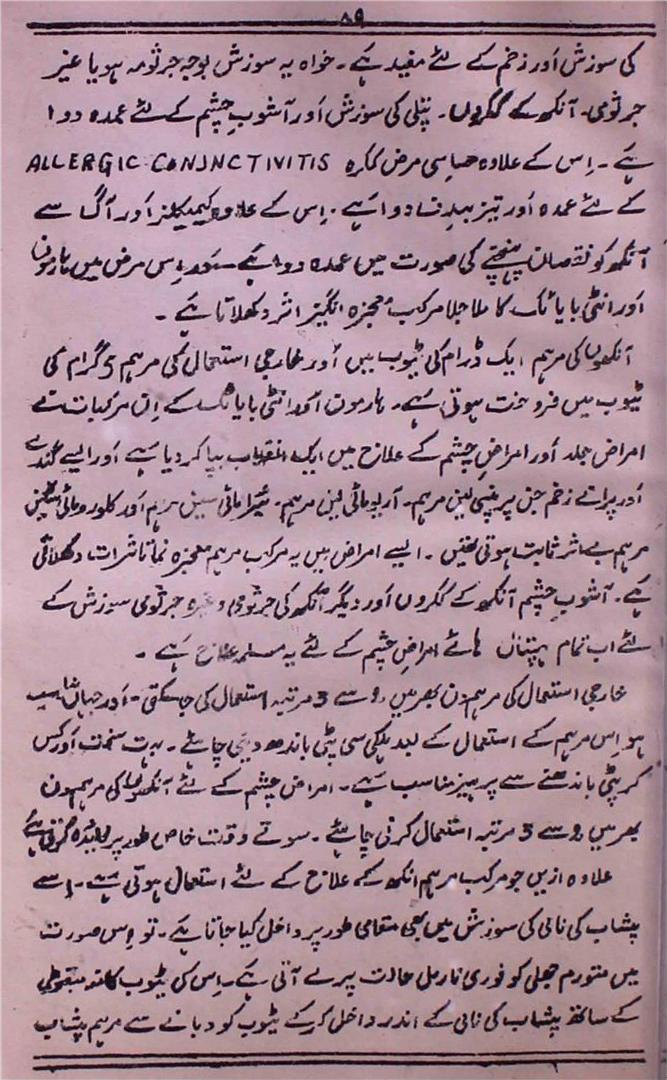 ۸۹
کی سوزش اور زخم کے لئے مفید ہے۔ خواہ یہ سوزش بوجہ جرثومہ ہو یا غیر
جرثومی۔ آنکھ کے ککروں۔ پتلی کی سوزش اور آشوبِ چشم کے لئے عمدہ دوا
ہے۔ اِس کے علاوہ حساسی مرض ککرہ ALLERGIC CONJNCTIVITIS
کے لئے عمدہ اور تیز بہدف دوا ہے۔ اِس کے علاوہ کیمیکلز اور آگ سے
آنکھ کو نقصان پہنچنے کی صورت میں عمدہ دوا ہے۔ اِس مرض میں ہارمون
اور انٹی بایاٹک کا ملا جلا مرکب معجزہ انگیز اثر دکھلاتا ہے۔
آنکھوں کی مرہم ایک ڈرام کی ٹیوب میں اور خارجی استعمال کی مرہم 5 گرام کی
ٹیوب میں فروخت ہوتی ہے۔ ہارمون اور انٹی بایاٹک کے اِن مرکبات نے
امراض جلد اور امراضِ چشم کے علاج میں ایک انقلاب بپا کر دیا ہے اور ایسے گندے
اور پرانے زخم جن پر پنسی لین مرہم۔ آریومائی لین مرہم۔ ٹیرامائی سین مرہم اور کلورومائی سٹین
مرہم بے اثر ثابت ہوتی تھیں۔ ایسے امراض میں یہ مرکب مرہم معجزہ نما تاثرات دکھلاتی
ہے۔ آشوبِ چشم آنکھ کے ککروں اور دیگر آنکھ کی جرثومی وغیرہ جرثومی سوزش کے
لئے اب تمام ہسپتال ہائے امراضِ چشم کے لئے یہ مسلمہ علاج ہے۔
خارجی استعمال کی مرہم دن بھر میں دو سے 3 مرتبہ استعمال کی جا سکتی۔ اور جہاں مناسب
ہو اِس مرہم کے استعمال کے بعد ہلکی سی پٹی باندھ دینی چاہئے۔ بہت سخت اور کس
کر پٹی باندھنے سے پرہیز مناسب ہے۔ امراض چشم کے لئے آنکھوں کی مرہم دن
بھر میں دو سے 3 مرتبہ استعمال کرنی چاہئے۔ سوتے وقت خاص طور پر فائدہ کرتی ہے
علاوہ ازیں جو مرکب مرہم آنکھ کے علاج کے لئے استعمال ہوتی ہے۔ اسے
پیشاب کی نالی کی سوزش میں بھی مقامی طور پر داخل کیا جاتا ہے۔ تو اِس صورت
میں متورم جھلی کو فوری نارمل حالت پر لے آتی ہے۔ اِس کی ٹیوب کا منہ مضبوطی
کے ساتھ پیشاب کی نالی کے اندر داخل کر کے ٹیوب کو دبانے سے مرہم پیشاب